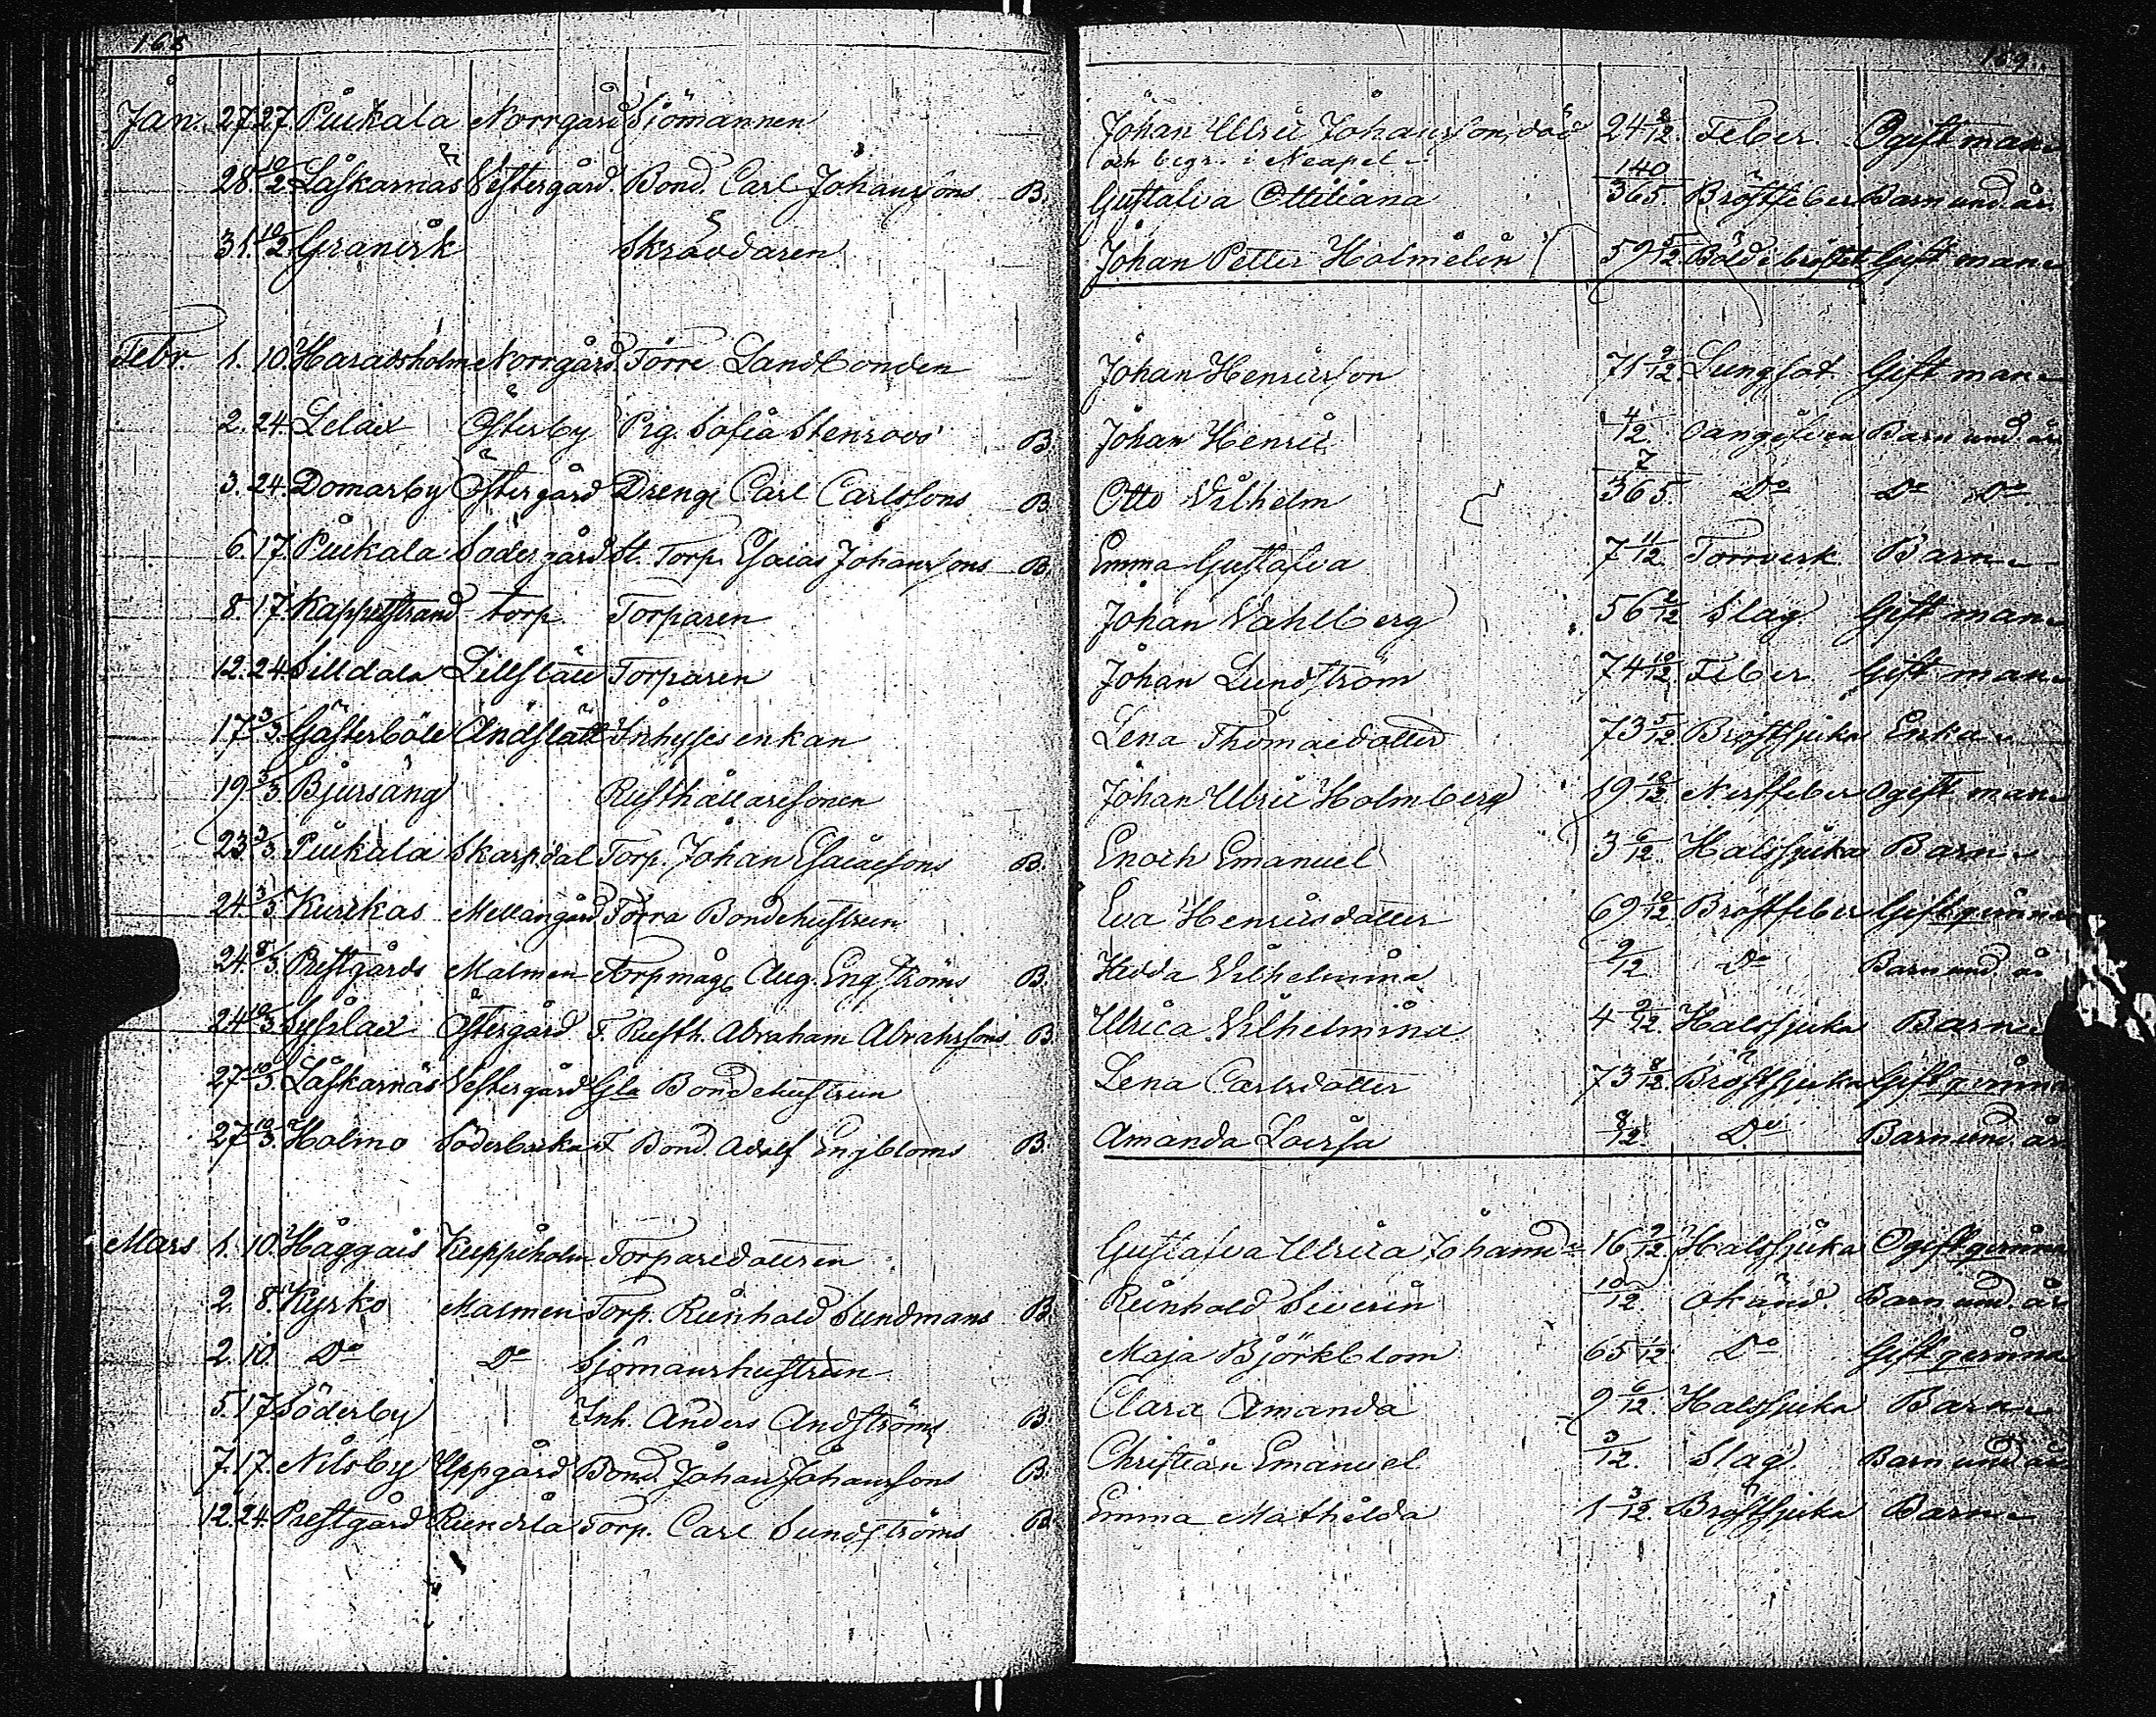 168
169.
Jan. 27 27. Påikala Norrgård Sjömannen Johan Ulric Johansson, död 24 8/12. Feber. Ogift man
och begr. i Neapel
28. 10/2. Låskarnäs Vestergård. Bond. Carl Johanssons B. Gustafva Ottiliana 140/365 Bröstfeber Barn und. år.
31. 10/2. Skräddaren Johan Petter Holmelin 59 5/12. Böld i bröstet Gift man
Febr. 1. 10. Haraldsholm Norrgård. Förre Landbonden Johan Henricsson 71 9/12. Lungsot. Gift man
2. 24. Lelax Österby Pig. Sofia Stenroos B. Johan Henric 4/12. Oangifven Barn und. år
3. 24. Domarby Östergård Dreng. Carl Carlssons B. Otto Vilhelm 7/365. Do Do Do
6. 17. Påikala Södergård St. Torp. Esaias Johanssons B. Emma Gustafva 7 11/12. Torrverk Barn
8. 17. Kappelstrand torp. Torparen Johan Vahlberg 56 2/12 Slag Gift man
12. 24. Silldala Torparen Johan Lundström 74 10/12. Feber Gift man
17. 3/3. Gästerböle Inhyses enkan Lena Thomaedotter 73 5/12. Bröstsjuka Enka
19. 3/3. Bjursäng Rusthållaresonen Johan Ulric Holmberg 19 10/12. Nervfeber Ogift man
23. 3/3. Påikala Skarpdal Torp. Johan Esaiaesons B. Enoch Emanuel 3 6/12. Halssjuka Barn
24. 3/3. Kurikas Mellangård. Förra Bondehustrun Eva Henricsdotter 69 10/12. Bröstfeber Gift qvinna
24. 8/3. Prestgårds Malmen Torpmåg Aug. Engströms B. Hedda Vilhelmina 2/12 Do Barn und. år
24. 10/3. Syfslax Östergård F. Rusth. Abraham Abrahssons B. Ulrica Vilhelmina 4 9/12. Halssjuka Barn
27. 10/3. Låskarnäs Vestergård Gla Bondehustrun Lena Carlsdotter 73 8/12. Bröstsjuka Gift qvinna
27. 10/3. Holmo F. Bond. Adolf Engbloms B. Amanda Lovisa 8/12. Do Barn und. år
Mars 1. 10. Haggais Kuppiholm Torparedottren Gustafva Ulrica Johansd. 16 9/12. Halssjuka Ogift qvinna
2. 8. Kyrko Malmen Torp. Reinhold Sundmans B. Reinhold Severin 10/12. Okänd. Barn und. år
2. 10. Do Do Sjömanshustrun Maja Björkblom 65 1/12 Do Gift qvinna
5. 17. Söderby Inh. Anders Andströms B. Clara Amanda 9 6/12. Halssjuka Barn
7. 17. Nilsby Uppgård Bond. Johan Johanssons B. Christian Emanuel 3/12. Slag. Barn und. år
12. 24. Prestgård Torp. Carl Sundströms B. Emma Mathilda 1 3/12. Bröstsjuka Barn